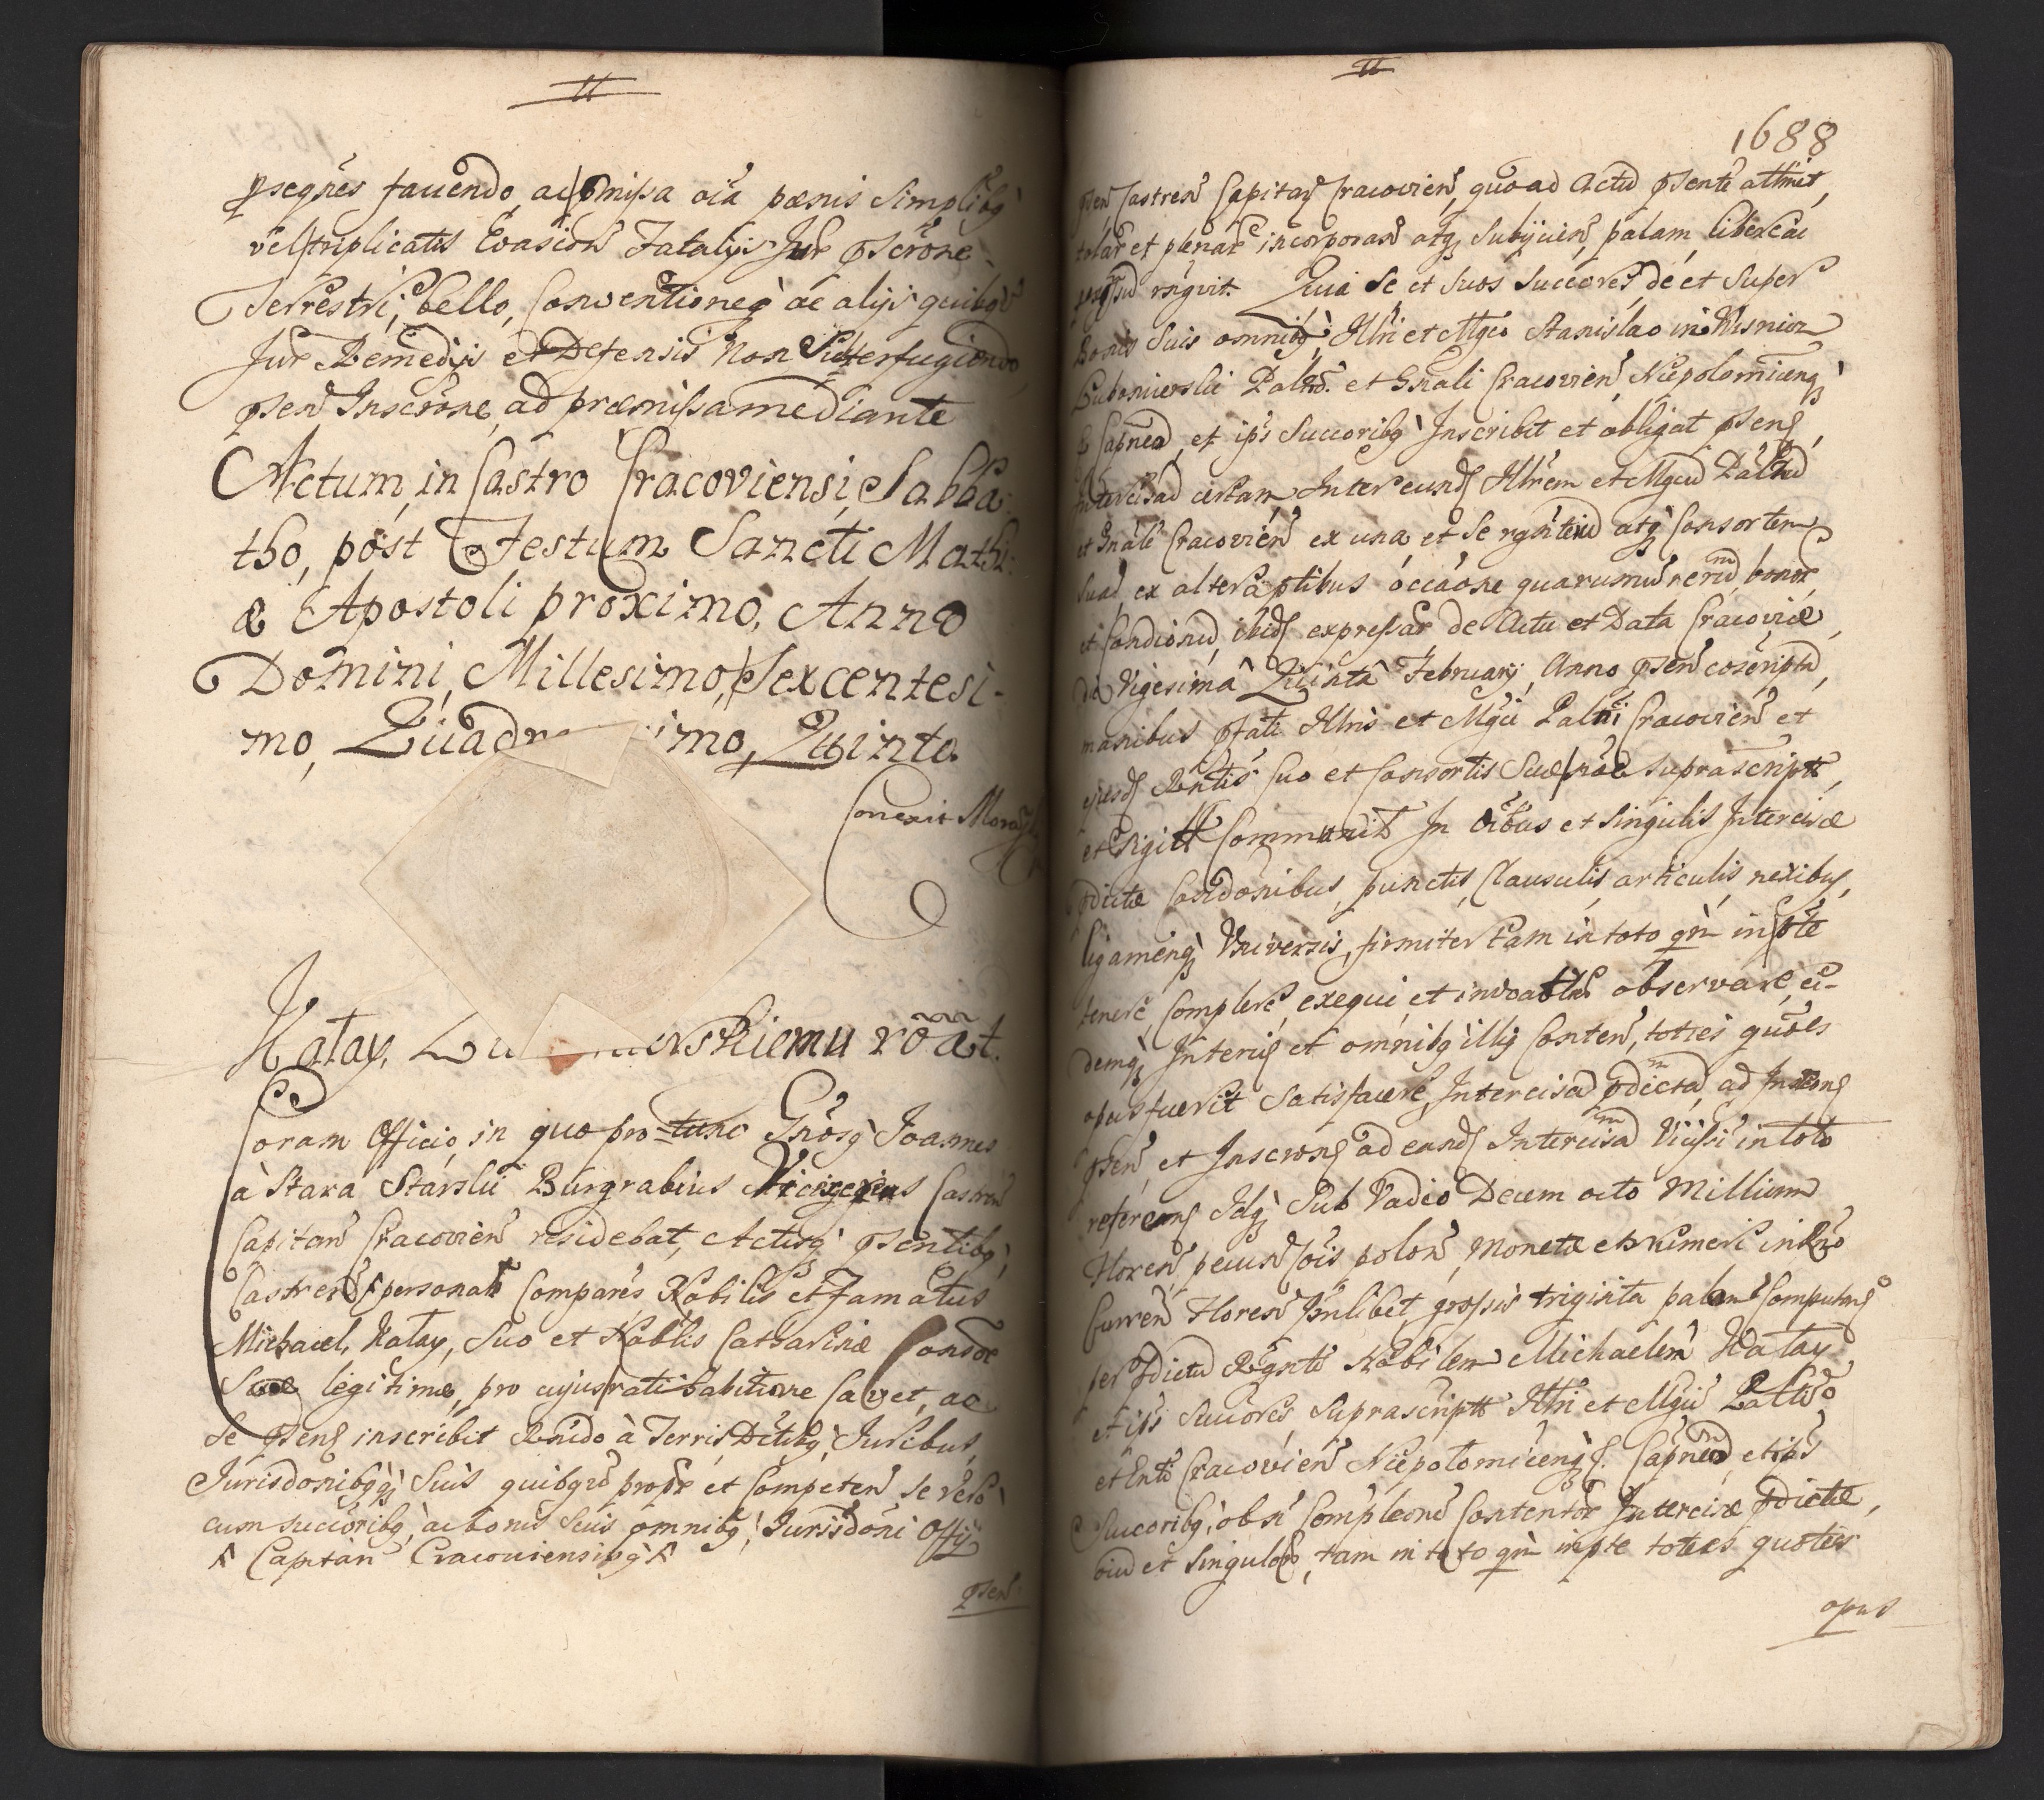 tt
pseqñes favendo, ac pmissa oia pænis Simplibq
vel triplicatis Evasioñ Fatalijs Jur pscrõne
Terrestri, bello, Conventioneq ac alijs quibq
Jur Remedijs et Defensis Non Subterfugiendo
pseñ Inscrõne, ad præmissa mediante
Actum, in Castro Cracoviensi, Sabba:
tho, post Festum Sancti Mathi:
æ Apostoli proximo, Anno
Domini, Millesimo, Sexcentesi-
mo, Quadr imo, Quinto.
Conexit
Katay, Lu ierskiemu roat.
Coram Officio, in quo pro tunc Gñosq Joannes
à Stara Starskij Burgrabius Vicegerens Castreñ
Capitan Cracovieñ residebat, Actisq pseñtibq
Castreñ personalr Comparès Nobilis et Famatus
Michael Katay, Suo et Nablis Catharinæ Consor
Suæ legitimæ, pro cujus ratihabitione Cavet, ac
Se pseñs inscribit Reñdo à Terris Ditibq, Juribus
Jurisdonibqq Suis quibqvs propr et Competeñ se vero
cum succoribq, ac bonis Suis omnibq, Jurisdoni Offij
^ Capitan Cracoviensibq ^
pseñ
tt
1688
pseñ Castreñ Capitan Cracovieñ, quo ad Actu pseñte attinet,
totalr et plenar incorporañ atq Subijcieñ, palam libere ac
rñgvit. Quia Se et Suos Succores de et Super
Bonis Suis omnibq, Illri et Mgco Stanislao in Wisnicz
Lubomierski Palno. et Gnali Cracovieñ, Niepolomicenq
Capneo, et ipis Succoribq Inscribit et obligat pseñs,
Intercisad certam Inter eund Illrem et Mgcu Palnu
et Gnale Cracovieñ ex una, et Se rgñtem atq Consortem
Suad ex altera ptibus occaone quarumuis rerum bonor
et Condionu, ibid expressar de Actu et Data Cracoviæ,
die Vigesima Quinta February, Anno pseñ coscripta,
manibus pfati Illris et Mgci Palni Cracovieñ et
ejusd Rñtis Suo et Consortis Suæ noie Suprascript,
et Sigill Communit In oibus et Singulis Intercisæ
pdictæ Condonibus, punctis, Clausulis, articulis, nexibus,
ligamenq Universis, firmiter tam in toto qm in pte
tenere, Complere, exequi, et inviolabler observare, ei-
demq Intercis et omnibq illiq Conteñ, toties quoties
opus fuerit Satisfacere, Intercisa pdicta, ad Inscrone
pseñ, et Inscrons ad eand Intercisa Vicissi in toto
refereens Idq Sub Vadio Decem octo Millium
Floreñ, pecuñ cois poloñ, Monetæ et Numeri in Regno
Curreñ Floreñ qmlibet grossis triginta polon Computans
per pdictu Rgnte Nobilem Michaelem Katay
et ipis Succores, Suprascript Illri et Mgco Palno
et Gnli Cracovieñ Niepolomicenq S. Capneo, et ipis
Succoribq, ob n Compleone Contentor Intercisæ pdictæ,
oiu et Singulor, tam in toto qm in pte toties quoties
opus